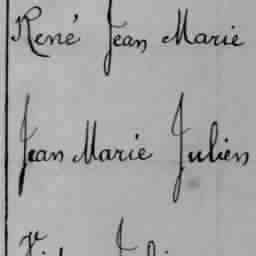 René Jean Marie
Jean Marie Julien